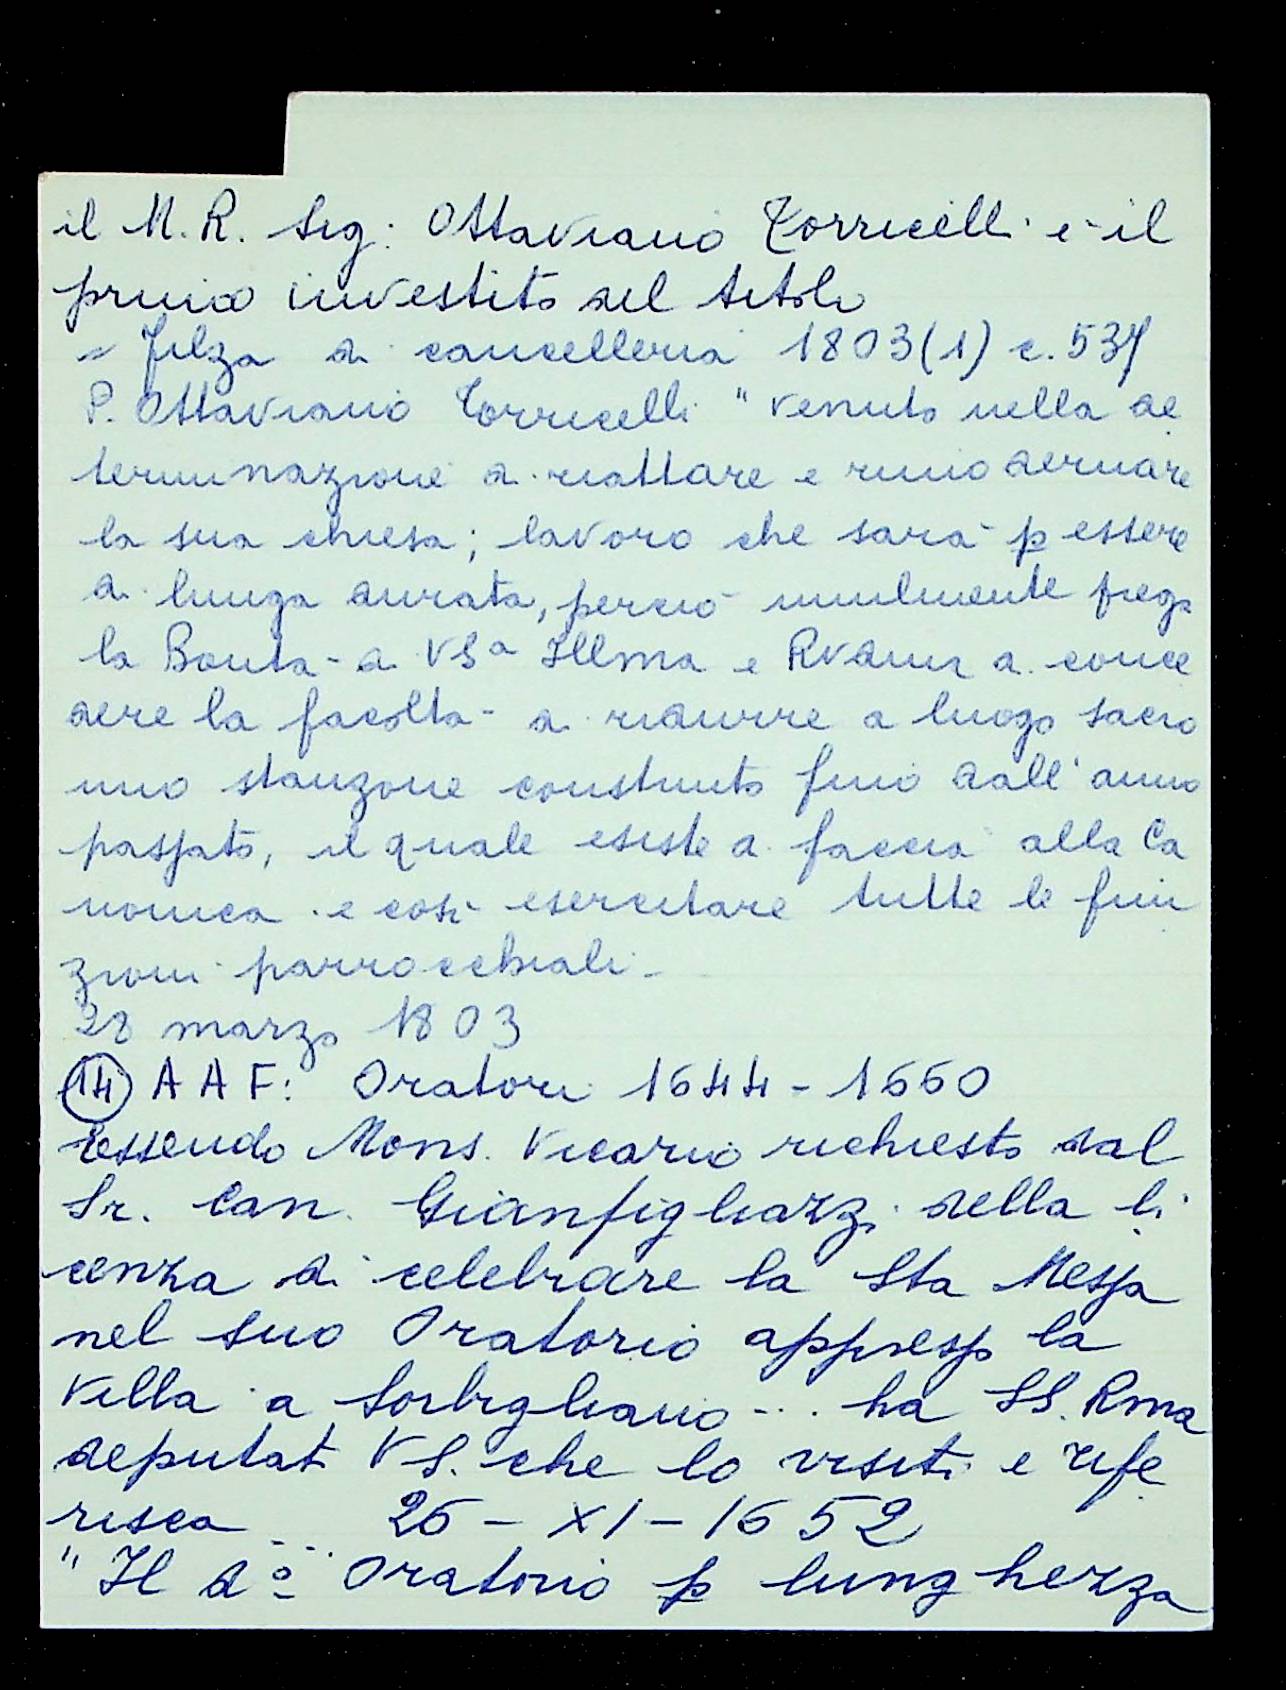 il M.R. Sig: Ottaviano Torricelli è il
primo investito del titolo
- Filza di cancelleria 1803(1) c. 537
P. Ottaviano Torricelli "venuto nella de
terminazione di riattare e rimodernare
la sua chiesa; lavoro che sarà p essere
di lunga durata, perciò umilmente prega
la Bontà di VSª Illma e Rvdma a conce
dere la facoltà di ridurre a luogo sacro
uno stanzone construito fino dall'anno
passato, il quale esiste di faccia alla Ca
nonica e così esercitare tutte le fun
zioni parrocchiali -
28 marzo 1803
(14) A A F: Oratori 1644 - 1660
Essendo Mons. Vicario richiesto dal
Sr. Can. Gianfigliazzi della li
cenza di celebrare la Sta Messa
nel suo Oratorio appresso la
Villa a Sorbigliano... ha SS. Rma
deputat VS. che lo visiti e rife
risca ... 26 - XI - 1652
"Il dº Oratorio p lunghezza